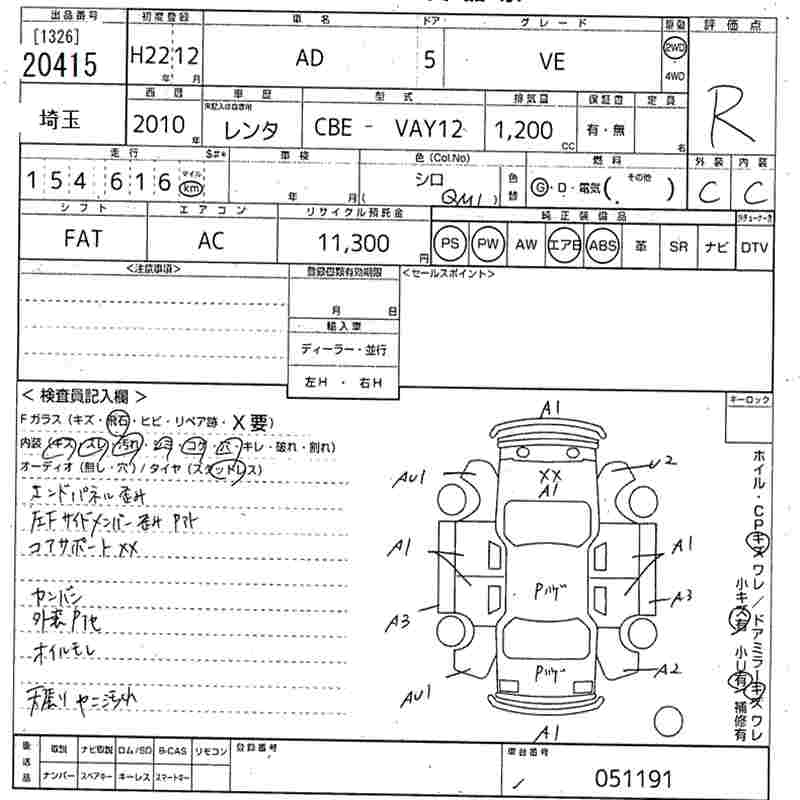 出品番号 初度登録 車名 ドア グレード 駆動 評価点
[1326]
20415 H22 12 AD 5 VE 2WD R
年 月 4WD
埼玉 西暦 車歴 型式 排気量 保証書 定員
未記入は自家用
2010年 レンタ CBE - VAY12 1,200 CC 有・無 名
走行 $#* 車検 色(Col.No) 燃料 外装 内装
154616 マイル km 年 月 シロ ( QM1 ) 色替 G・D・電気( その他 ) C C
シフト エアコン リサイクル預託金 純正装備品
FAT AC 11,300円 PS PW AW エアB ABS 革 SR ナビ DTV
<注意事項> 登録書類有効期限 <セールスポイント>
月 日
輸入車
ディーラー・並行
左H ・ 右H
<検査員記入欄> キーロック
Fガラス(キズ・飛石・ヒビ・リペア跡・X要)
内装(キズ・スレ・汚れ・シミ・コゲ・穴・キレ・破れ・割れ)
オーディオ(無し・穴)/タイヤ(スタッドレス)
エンドパネル歪み
左Fサイドメンバー歪み Pスト
コアサポートXX
カンバン
外装Pセ
オイルモレ
天張りヤニ汚れ
A1
AU1 XX U2
A1
A1 A1
A3 Pハゲ A3
Pハゲ
AU1 A2
A1
ホイル・CPキズワレ/ドアミラーキズワレ
小キズ有 小U有 補修有
後送品 取説 ナビ取説 ロム/SD B-CAS リモコン 登録番号 車台番号
ナンバー スペアキー キーレス スマートキー 051191